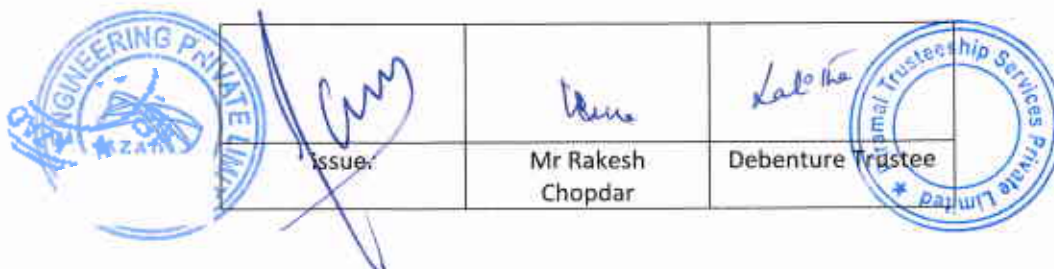 ENGINEERING PRIVATE LIMI
AZA
Lalitha
Issuer
Mr Rakesh
Chopdar
Debenture Trustee
Piramal Trusteeship Services Private Limited ★